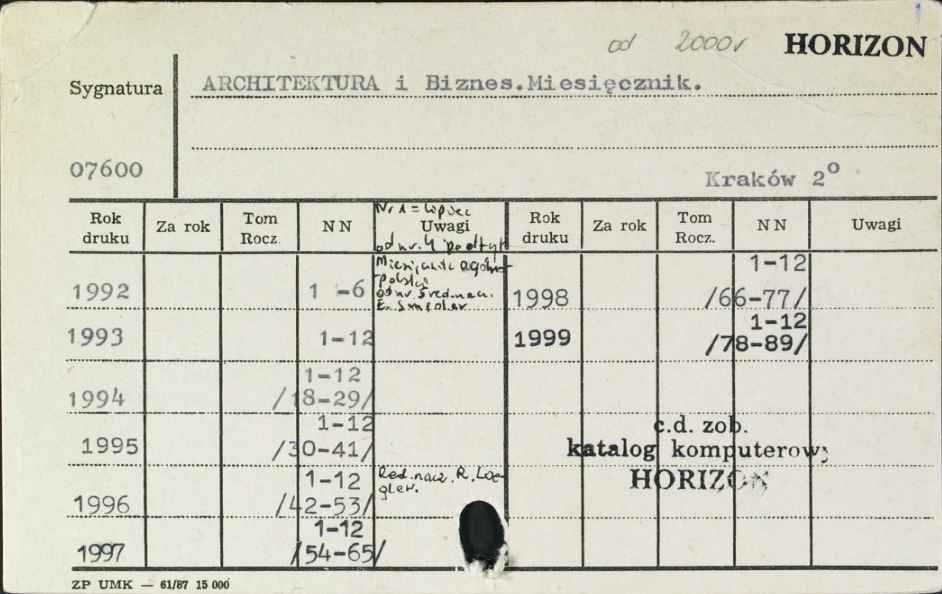 od 2000r HORIZON
Sygnatura ARCHITEKTURA i Biznes.Miesięcznik.
07600
Kraków 2°
Rok druku Za rok Tom Rocz. N N Nr 1 = lipiec Uwagi od nr. 4 podtyt Rok druku Za rok Tom Rocz. N N Uwagi
1992 1 -6 polski od nr. 5 red. nacz. 1998 1-12 /66-77/
1993 1-12 1999 1-12 /78-89/
1994 1-12 /18-29/
1995 1-12 /30-41/
c.d. zob.
katalog komputerowy
HORIZON
1996 1-12 /42-53/ Red. nacz. R. Loe-
gler.
1997 1-12 /54-65/
ZP UMK — 61/87 15 000